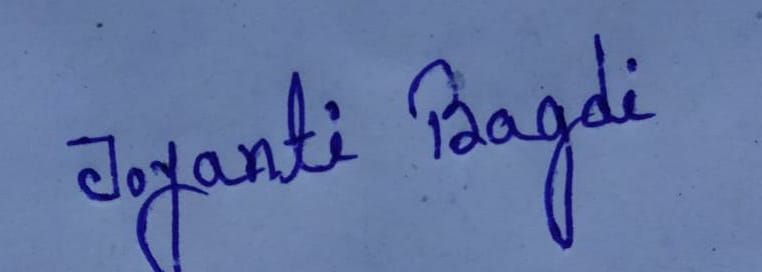 Joyanti Bagdi